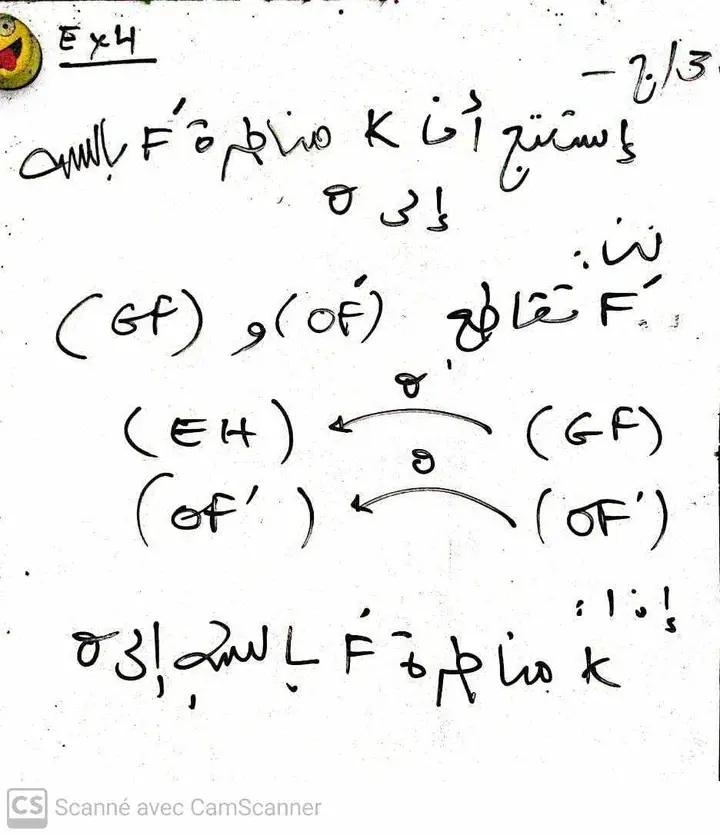 Ex4
3/ج -
إستنتج أن K مناظرة F' بالنسبة
إلى O
لدينا:
F' تقاطع (OF') و (GF)
(GF) O (EH)
(OF') O (OF')
إذا:
K مناظرة F' بالنسبة إلى O
CS Scanné avec CamScanner